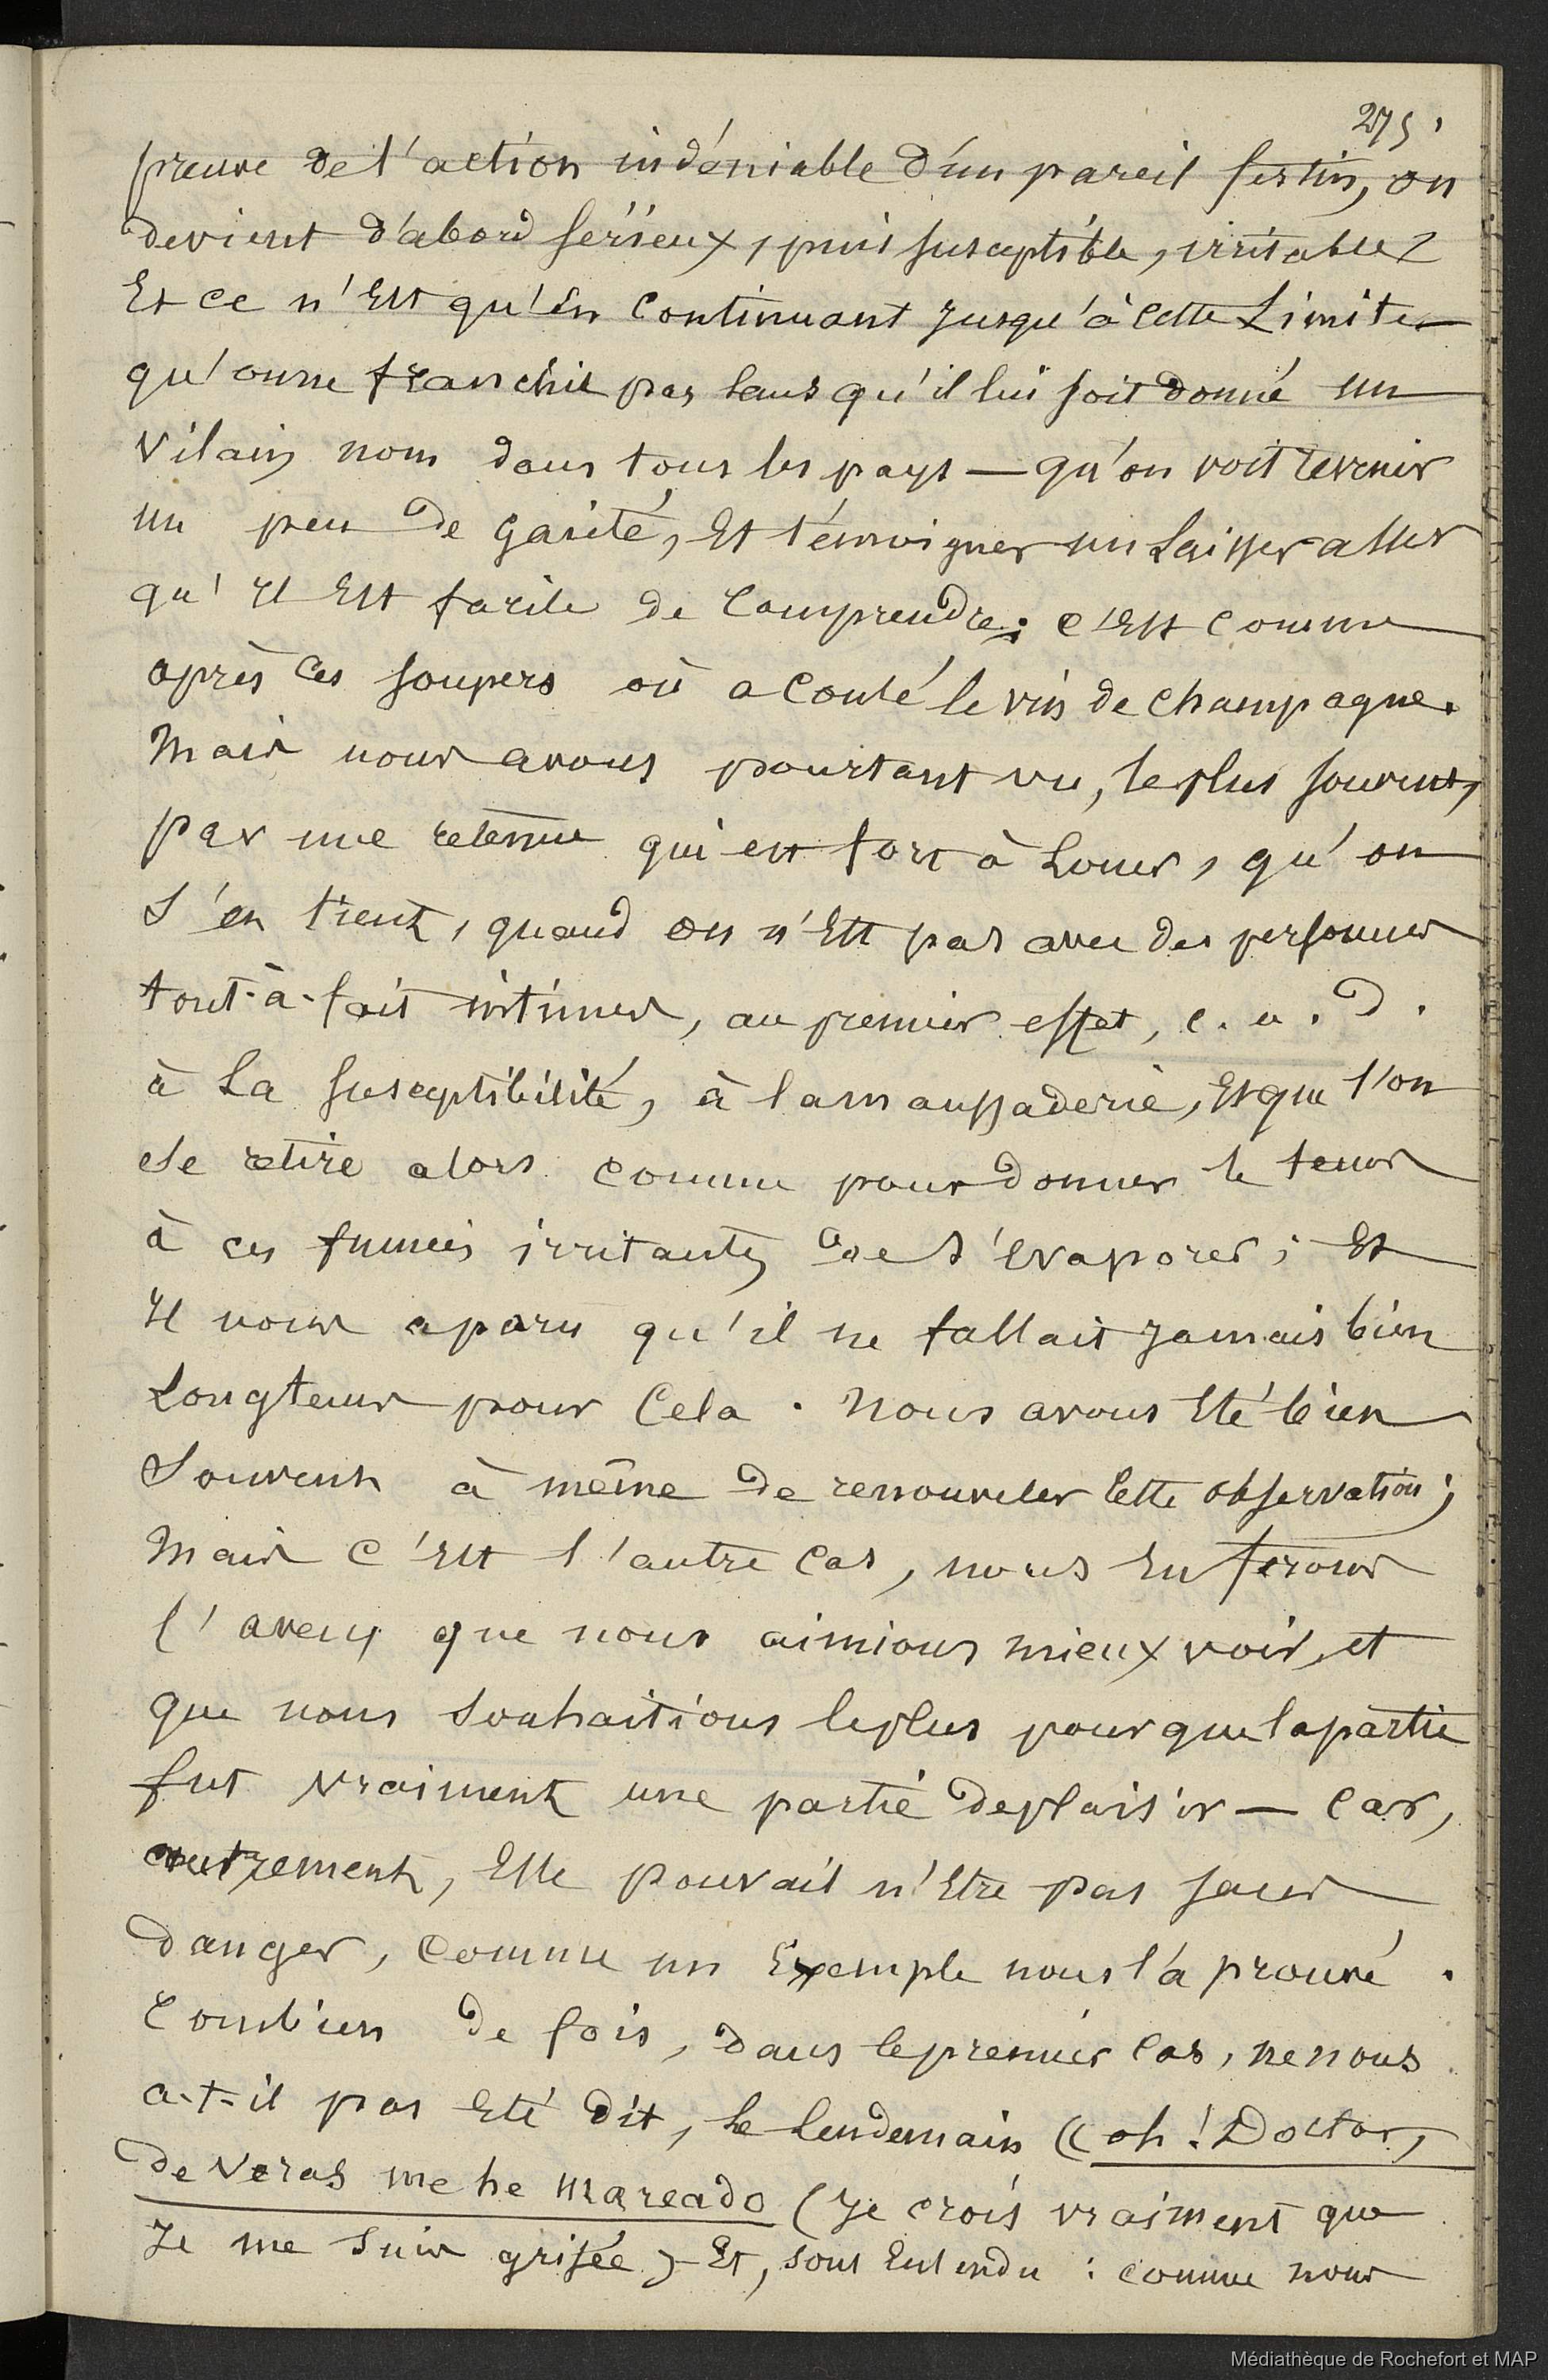 275.
preuve de l'action indéniable d'un pareil festin, on
devient d'abord sérieux, puis susceptible, irritable
Et ce n'Est qu'En continuant jusqu'à cette Limite
qu'on ne franchit pas sans qu'il lui soit donné un
vilain nom dans tous les pays — qu'on voit revenir
un peu de gaieté, Et témoigner un Laisser aller
qu'Il Est facile de comprendre; c'Est comme
après ces soupers où a coulé le vin de champagne.
Mais nous avons pourtant vu, le plus souvent,
par une retenue qui est fort à Louer, qu'on
s'en tient, quand on n'Est pas avec des personnes
tout-à-fait intimes, au premier effet, c. a. d.
à La susceptibilité, à la maussaderie, Et que l'on
se retire alors comme pour donner le tems
à ces fumées irritantes de s'evaporer; Et
Il nous a paru qu'il ne fallait jamais bien
Longtems pour Cela. Nous avons Eté bien
Souvent à même de renouveler cette observation;
Mais c'Est l'autre cas, nous En ferons
l'aveu, que nous aimions mieux voir, et
que nous souhaitions le plus pour que la partie
fut vraiment une partie de plaisir — Car,
autrement, Elle pouvait n'Etre pas sans
danger, comme un Exemple nous l'a prouvé.
Combien de fois, dans le premier cas, ne nous
a-t-il pas Eté dit, le lendemain (( oh! Doctor,
de veras me he mareado (je crois vraiment que
Je me suis grisée) — Et, sous Entendu : comme nous
Médiathèque de Rochefort et MAP